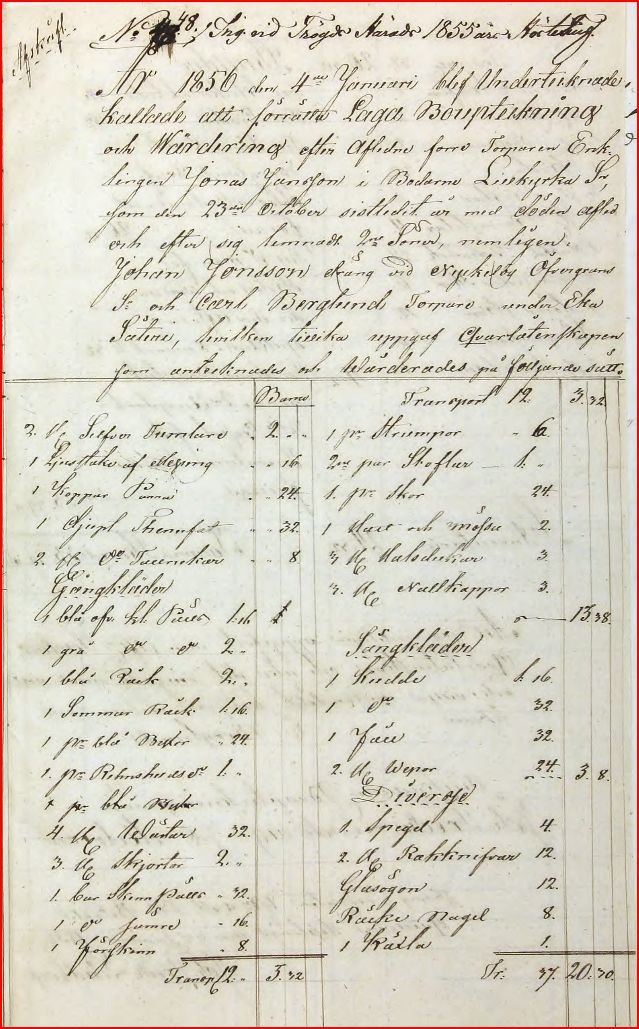 Afskrift.
No 48. Ing. vid Trögds Härads 1855 års Hösteting.
År 1856 den 4de Januari blef Undertecknade
kallade att förrätta Laga Bouptekning
och Wärdering efter Aflidne förre Torparen Enk-
lingen Jonas Jansson i Bodarne Liskyrka Sn,
som den 23de October sistledit år med döden afled
och efter sig lemnadt 2ne Söner, nemligen:
Johan Jonsson dräng vid Nyckelby Öfvergrans
Sn och Carl Berglund Torpare under Eka
Säteri, hvilken uppgaf Qvarlåtenskapen
som antecknades och Wärderades på följande sätt.
Banco
2. st Silfver Tumlare 2. " "
1 Ljusstake af Messing " 16
1 Koppar Panna " 24.
1 djupt Tennfat " 32.
2. st do " 8
Gångkläder
1 blå öfv. kl. Päls 1:16
1 grå do do 2 "
1 blå Råck 2. "
1 Sommar Råck 1:16.
1 pr blå Byxor " 24.
1. pr do 1: "
1 pr blå Byxor
4. st Wästar 32.
3. st Skjortor 2. "
1. bar Skinn Päls " 32.
1 do sämre " 16.
1 Förskinn " 8.
Transp 12. " 3. 32
Transport 12. 3. 32.
1 pr Strumpor " 6.
2ne par Stöflar 1. "
1. pr Skor 24
1 Hatt och mössa 2.
3 st Halsdukar 3.
3. st Nattkappor 3.
13. 38.
Sängkläder
1 Kudde 1. 16.
1 do 32.
1 Fäll 32.
2. st Wepor 24. 3. 8.
Diverse
1. Spegel 4.
2. st Rakknifvar 12.
Glasögon 12.
Nagel 8.
1 Kätla 1.
Tr: 37. 20. 30.